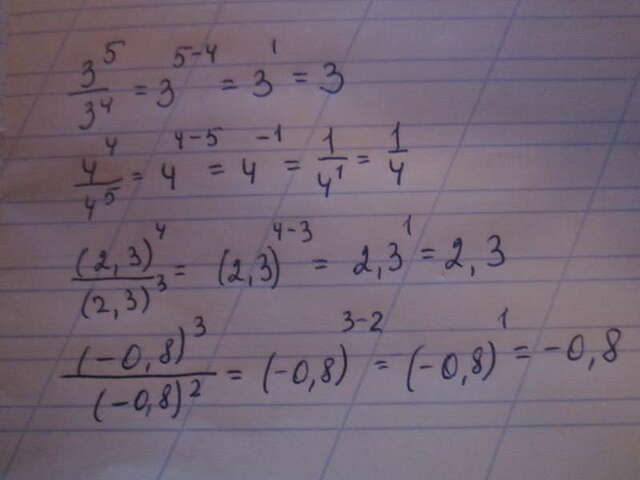 3^5/3^4 = 3^{5-4} = 3^1 = 3
4^4/4^5 = 4^{4-5} = 4^{-1} = 1/4^1 = 1/4
(2,3)^4/(2,3)^3 = (2,3)^{4-3} = 2,3^1 = 2,3
(-0,8)^3/(-0,8)^2 = (-0,8)^{3-2} = (-0,8)^1 = -0,8